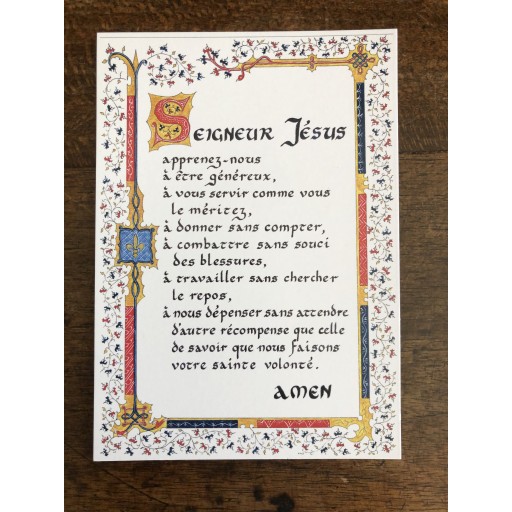 Seigneur Jésus
apprenez-nous
à être généreux,
à vous servir comme vous
le méritez,
à donner sans compter,
à combattre sans souci
des blessures,
à travailler sans chercher
le repos,
à nous dépenser sans attendre
d'autre récompense que celle
de savoir que nous faisons
votre sainte volonté.
AMEN